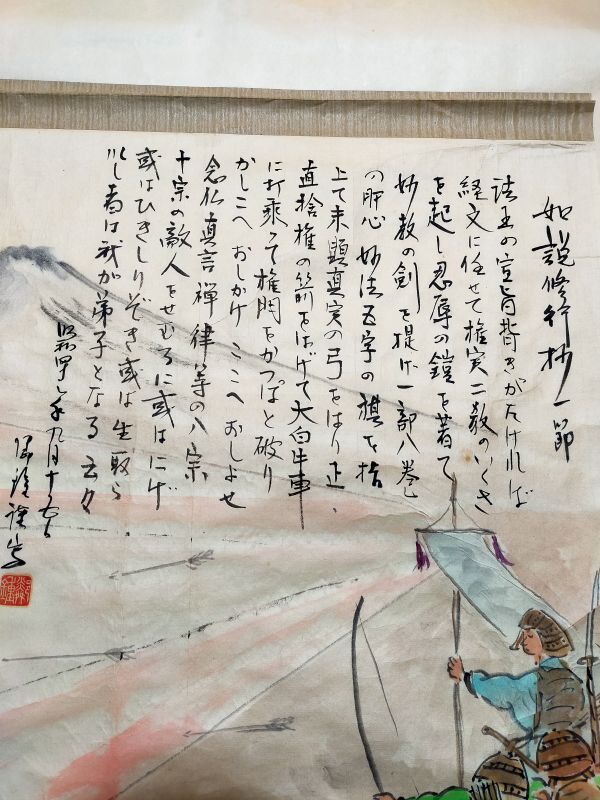 如説修行抄一節
法王の宣旨背きがたければ
経文に任せて権実二教のいくさ
を起し忍辱の鎧を着て
妙教の剣を提げ一部八巻
の肝心妙法五字の旗を指
上て未顕真実の弓をはり正
直捨権の箭をはげて大白牛車
に打乗って権門をかっぱと破り
かしこへおしかけここへおしよせ
念仏真言禅律等の八宗
十宗の敵人をせむるに或はにげ
或はひきしりぞき或は生取ら
れし者は我が弟子となる云々
九月十
謹写